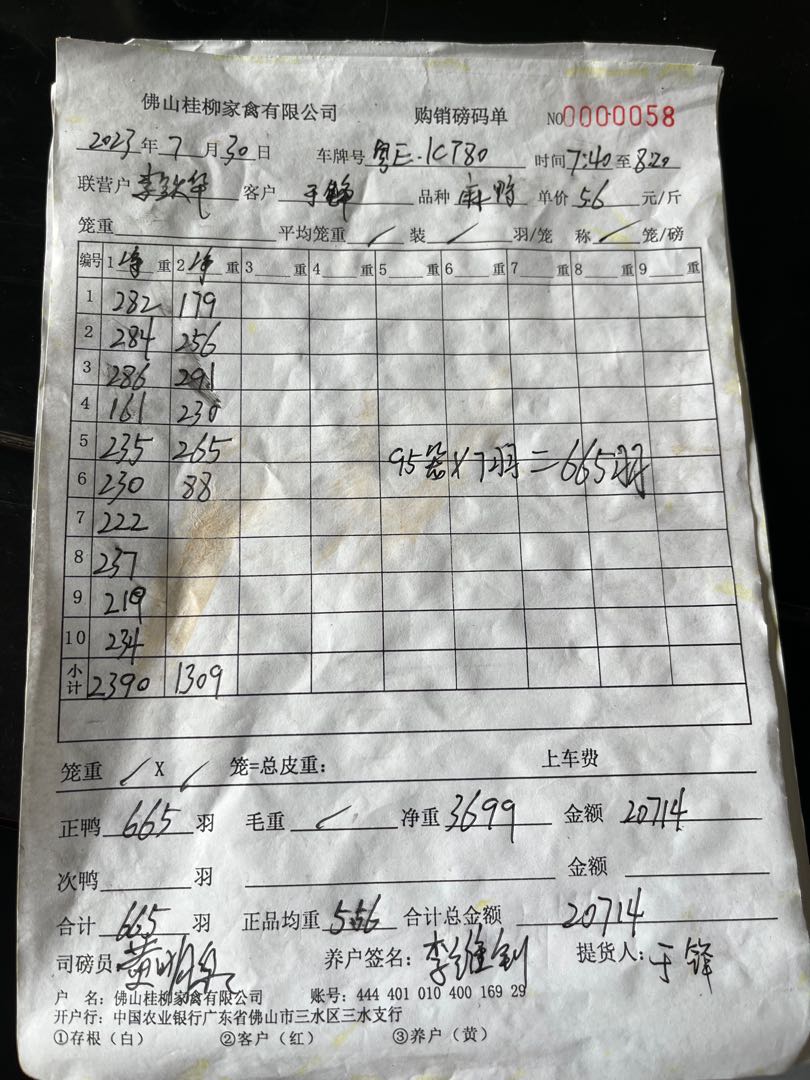 佛山桂柳家禽有限公司 购销磅码单 NO0000058
2023年7月30日 车牌号 粤E·1CT80 时间7:40至8:20
联营户 李 客户 于锋 品种 麻鸭 单价 5.6 元/斤
笼重 平均笼重 / 装 / 羽/笼 称 / 笼/磅
编号 1净重 2净重 3重 4重 5重 6重 7重 8重 9重
1 282 179
2 284 256
3 286 291
4 161 230
5 235 265 95笼×7羽=665羽
6 230 88
7 222
8 237
9 219
10 234
小计 2390 1309
笼重 / X / 笼=总皮重: 上车费
正鸭 665 羽 毛重 / 净重 3699 金额 20714
次鸭 羽 金额
合计 665 羽 正品均重 5.56 合计总金额 20714
司磅员 黄 养户签名: 李维钊 提货人: 于锋
户 名: 佛山桂柳家禽有限公司 账号: 444 401 010 400 169 29
开户行: 中国农业银行广东省佛山市三水区三水支行
①存根(白) ②客户(红) ③养户(黄)